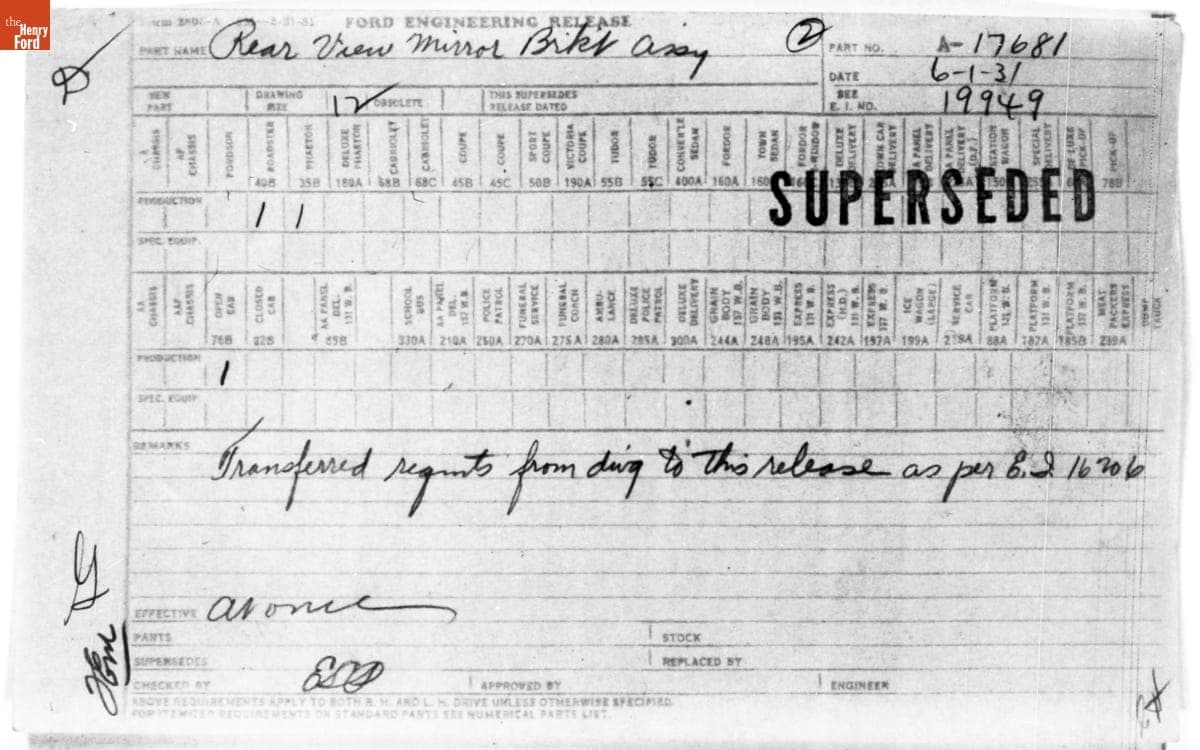 the Henry Ford
FORD ENGINEERING RELEASE
PART NAME Rear View Mirror Brk't Assy 2 PART NO. A-17681
DATE 6-1-31
NEW PART DRAWING SIZE 12 OBSOLETE THIS SUPERSEDES RELEASE DATED SEE E. I. NO. 19949
AA CHASSIS AF CHASSIS FORDSON ROADSTER PHAETON DELUXE PHAETON CABRIOLET CABRIOLET COUPE COUPE SPORT COUPE VICTORIA COUPE TUDOR TUDOR CONVERT'LE SEDAN FORDOR TOWN SEDAN FORDOR DELUXE DELIVERY TOWN CAR DELIVERY A PANEL DELIVERY A PANEL DELIVERY (D.F.) STATION WAGON SPECIAL DELIVERY DE LUXE PICK-UP PICK-UP
40B 35B 180A 68B 68C 45B 45C 50B 190A 55B 55C 400A 160A 78B
SUPERSEDED
PRODUCTION 1 1
SPEC. EQUIP.
AA CHASSIS AF CHASSIS OPEN CAB CLOSED CAB AA PANEL DEL. 131 W. B. SCHOOL BUS AA PANEL DEL. 157 W.B. POLICE PATROL FUNERAL SERVICE FUNERAL COACH AMBULANCE DELUXE POLICE PATROL DELUXE DELIVERY GRAIN BODY 157 W.B. GRAIN BODY 131 W.B. EXPRESS 131 W. B. EXPRESS (H.D.) 131 W. B. EXPRESS 157 W. B. ICE WAGON (LARGE) SERVICE CAR PLATFORM 131 W. B. PLATFORM 131 W. B. PLATFORM 157 W. B. MEAT PACKERS EXPRESS DUMP TRUCK
76B 82B 85B 330A 210A 250A 270A 275A 280A 285A 300A 244A 248A 195A 242A 197A 199A 219A 88A 187A 185B 239A
PRODUCTION 1
SPEC. EQUIP.
REMARKS Transferred reqmts from dwg to this release as per E.I 16206
EFFECTIVE at once
PARTS STOCK
SUPERSEDES REPLACED BY
CHECKED BY APPROVED BY ENGINEER
ABOVE REQUIREMENTS APPLY TO BOTH R. H. AND L. H. DRIVE UNLESS OTHERWISE SPECIFIED.
FOR ITEMIZED REQUIREMENTS ON STANDARD PARTS SEE NUMERICAL PARTS LIST.